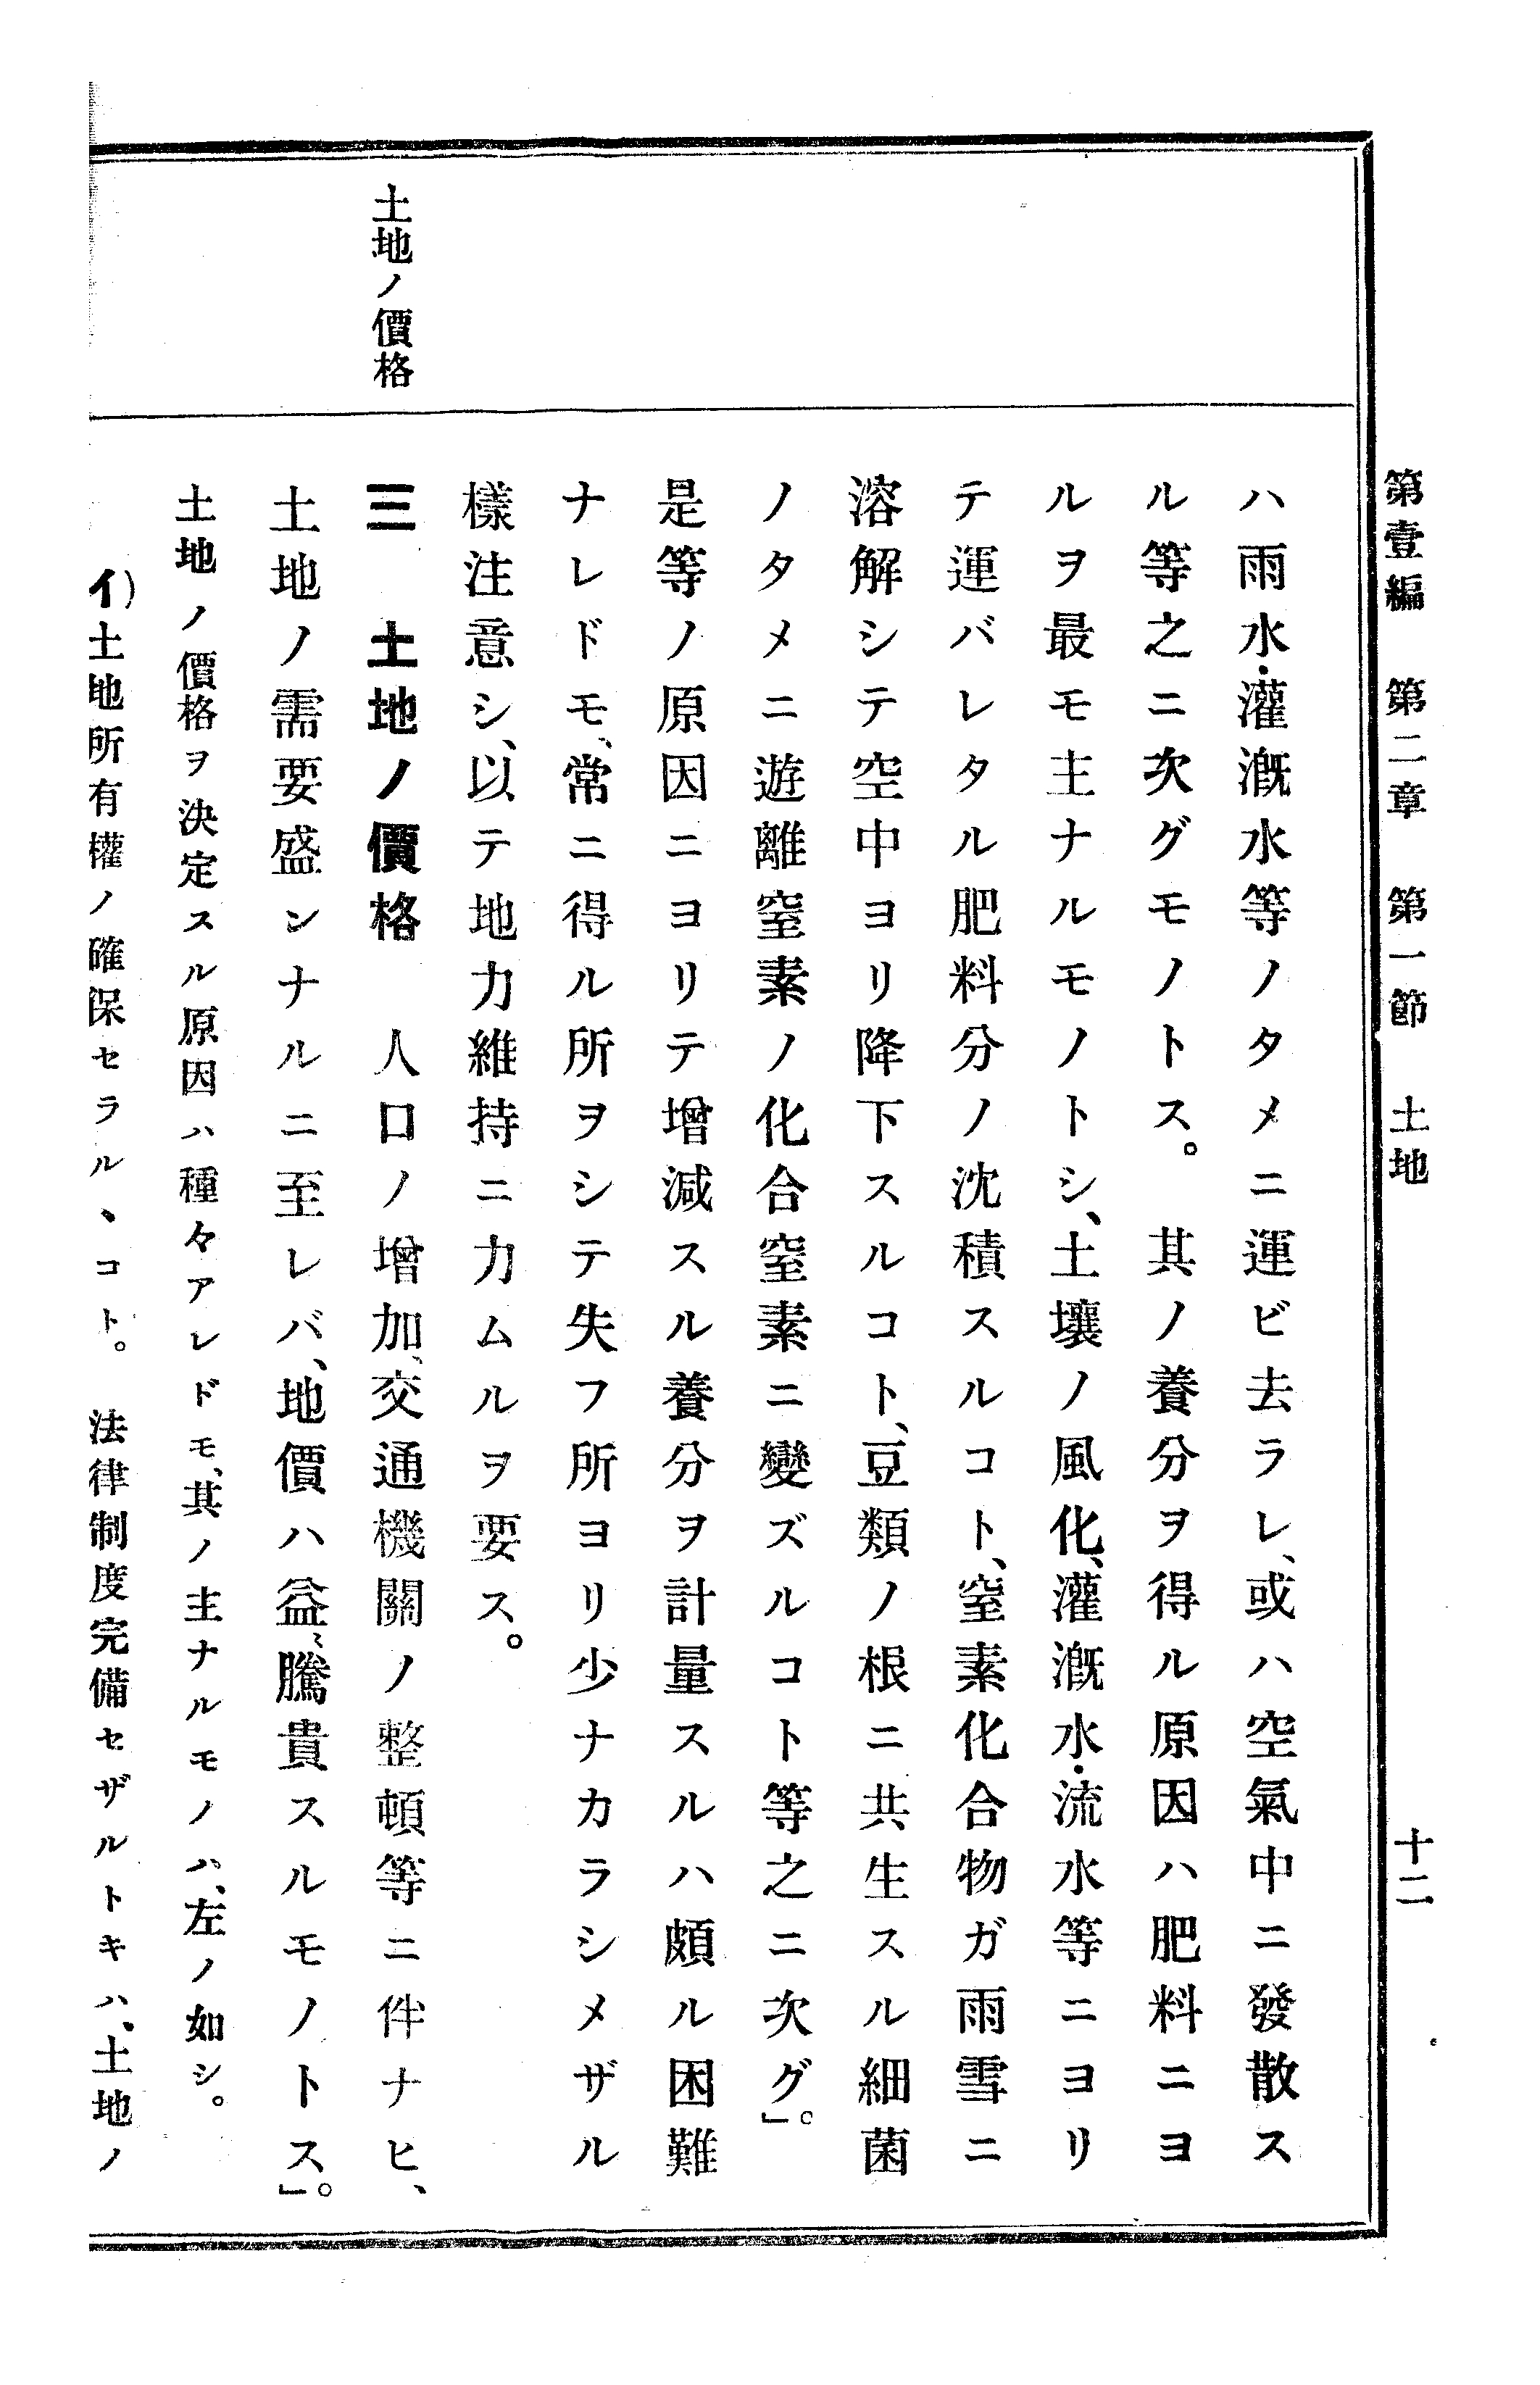 第壹編　第二章　第一節　土地　十二
ハ雨水・灌漑水等ノタメニ運ビ去ラレ、或ハ空氣中ニ發散ス
ル等之ニ次グモノトス。其ノ養分ヲ得ル原因ハ肥料ニヨ
ルヲ最モ主ナルモノトシ、土壤ノ風化、灌漑水・流水等ニヨリ
テ運バレタル肥料分ノ沈積スルコト、窒素化合物ガ雨雪ニ
溶解シテ空中ヨリ降下スルコト、豆類ノ根ニ共生スル細菌
ノタメニ遊離窒素ノ化合窒素ニ變ズルコト等之ニ次グ。」
是等ノ原因ニヨリテ增減スル養分ヲ計量スルハ頗ル困難
ナレドモ、常ニ得ル所ヲシテ失フ所ヨリ少ナカラシメザル
樣注意シ、以テ地力維持ニ力ムルヲ要ス。
土地ノ價格
三　土地ノ價格　人口ノ增加、交通機關ノ整頓等ニ件ナヒ、
土地ノ需要盛ンナルニ至レバ、地價ハ益〻騰貴スルモノトス。」
土地ノ價格ヲ決定スル原因ハ種々アレドモ、其ノ主ナルモノハ、左ノ如シ。
イ）土地所有權ノ確保セラルヽコト。法律制度完備セザルトキハ、土地ノ